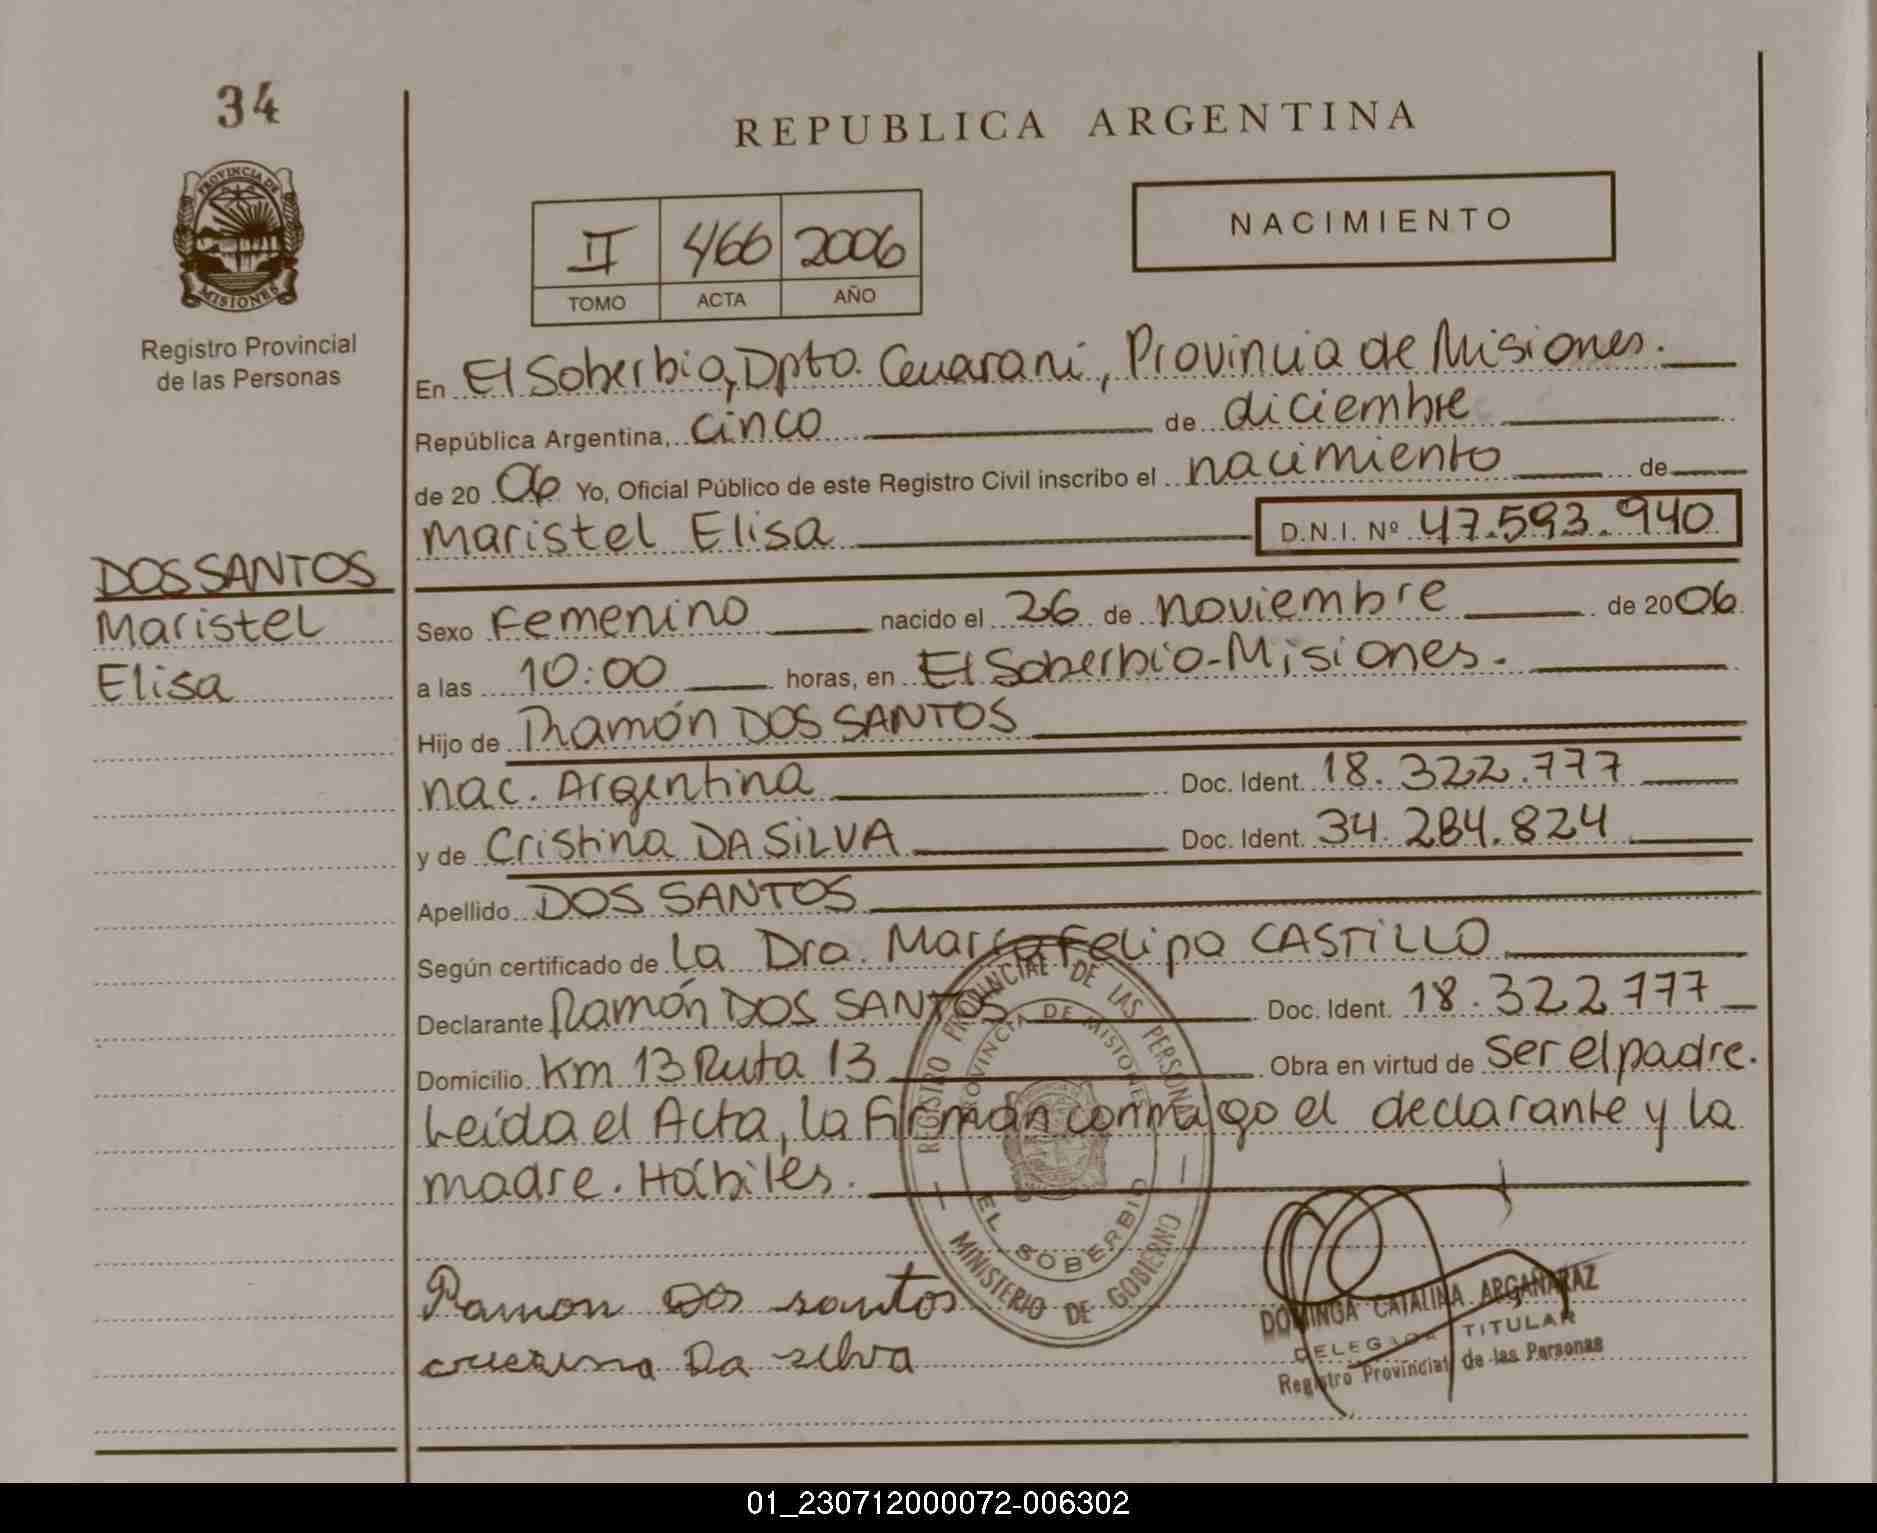 34
PROVINCIA DE
MISIONES
Registro Provincial
de las Personas
REPUBLICA ARGENTINA
II 466 2006
TOMO ACTA AÑO
NACIMIENTO
En El Soberbio, Dpto. Guaraní, Provincia de Misiones.
República Argentina, cinco de diciembre
de 20 06 Yo, Oficial Público de este Registro Civil inscribo el nacimiento de
Maristel Elisa D.N.I. Nº 47.593.940
DOS SANTOS
Maristel
Elisa
Sexo Femenino nacido el 26 de noviembre de 2006
a las 10:00 horas, en El Soberbio-Misiones.
Hijo de Ramón DOS SANTOS
nac. Argentina Doc. Ident. 18.322.777
y de Cristina DA SILVA Doc. Ident. 34.284.824
Apellido DOS SANTOS
Según certificado de la Dra. María Felipa CASTILLO
Declarante Ramón DOS SANTOS Doc. Ident. 18.322.777
Domicilio Km 13 Ruta 13 Obra en virtud de Ser el padre.
Leída el Acta, la firman conmigo el declarante y la
madre. Hábiles.
REGISTRO PROVINCIAL DE LAS PERSONAS
PROVINCIA DE MISIONES
EL SOBERBIO
MINISTERIO DE GOBIERNO
Ramon Dos santos
Da silva
DOMINGA CATALINA ARGAÑARAZ
DELEGADA TITULAR
Registro Provincial de las Personas
01_230712000072-006302